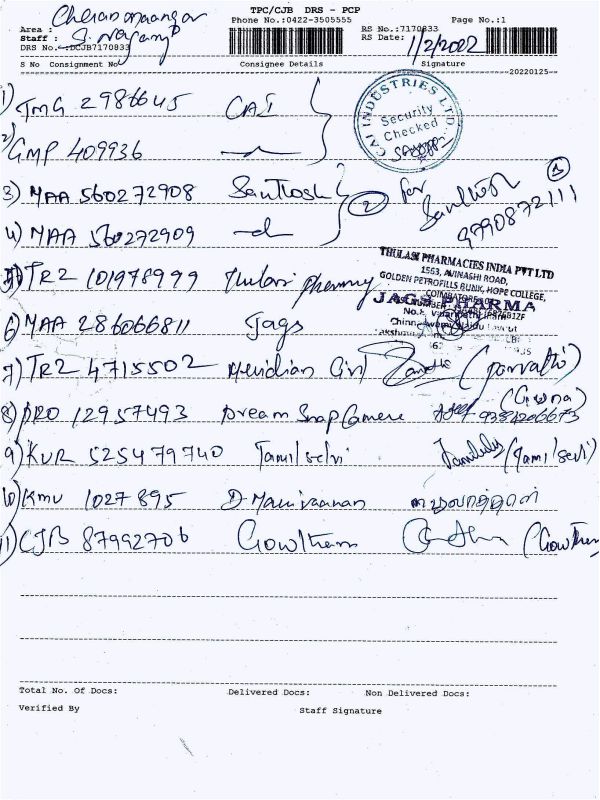 TPC/CJB DRS - PCP
Phone No.:0422-3505555 Page No.:1
Area : Cheranmaangar
Staff : S. Nagaraj
RS No.:7170833
RS Date: 1/2/2022
DRS No.:DCJB7170833
S No Consignment No Consignee Details Signature
20220125
1) TMG 2986645 CAI
CAI INDUSTRIES LTD.
Security
Checked
2) GMP 409936
3) MAA 560272908 Santhosh
2 for Santhosh
9790872111
4) MAA 560272909
5) TR2 101978999 Thulasi Pharmacy
THULASI PHARMACIES INDIA PVT LTD
1563, AVINASHI ROAD,
GOLDEN PETROFILLS BUNK, HOPE COLLEGE,
COIMBATORE
JAGS PHARMA
6) MAA 286066811 Jags
7) TR2 4715502 Meridian Civil (parvathi)
8) PRO 12957493 Dream Snap Camere
9) KUR 525479740 Tamilselvi (Tamilselvi)
10) KMU 1027895 D. Manivaanan
11) CJB 87992706 Gowtham (Gowtham
Total No. Of Docs: Delivered Docs: Non Delivered Docs:
Verified By Staff Signature